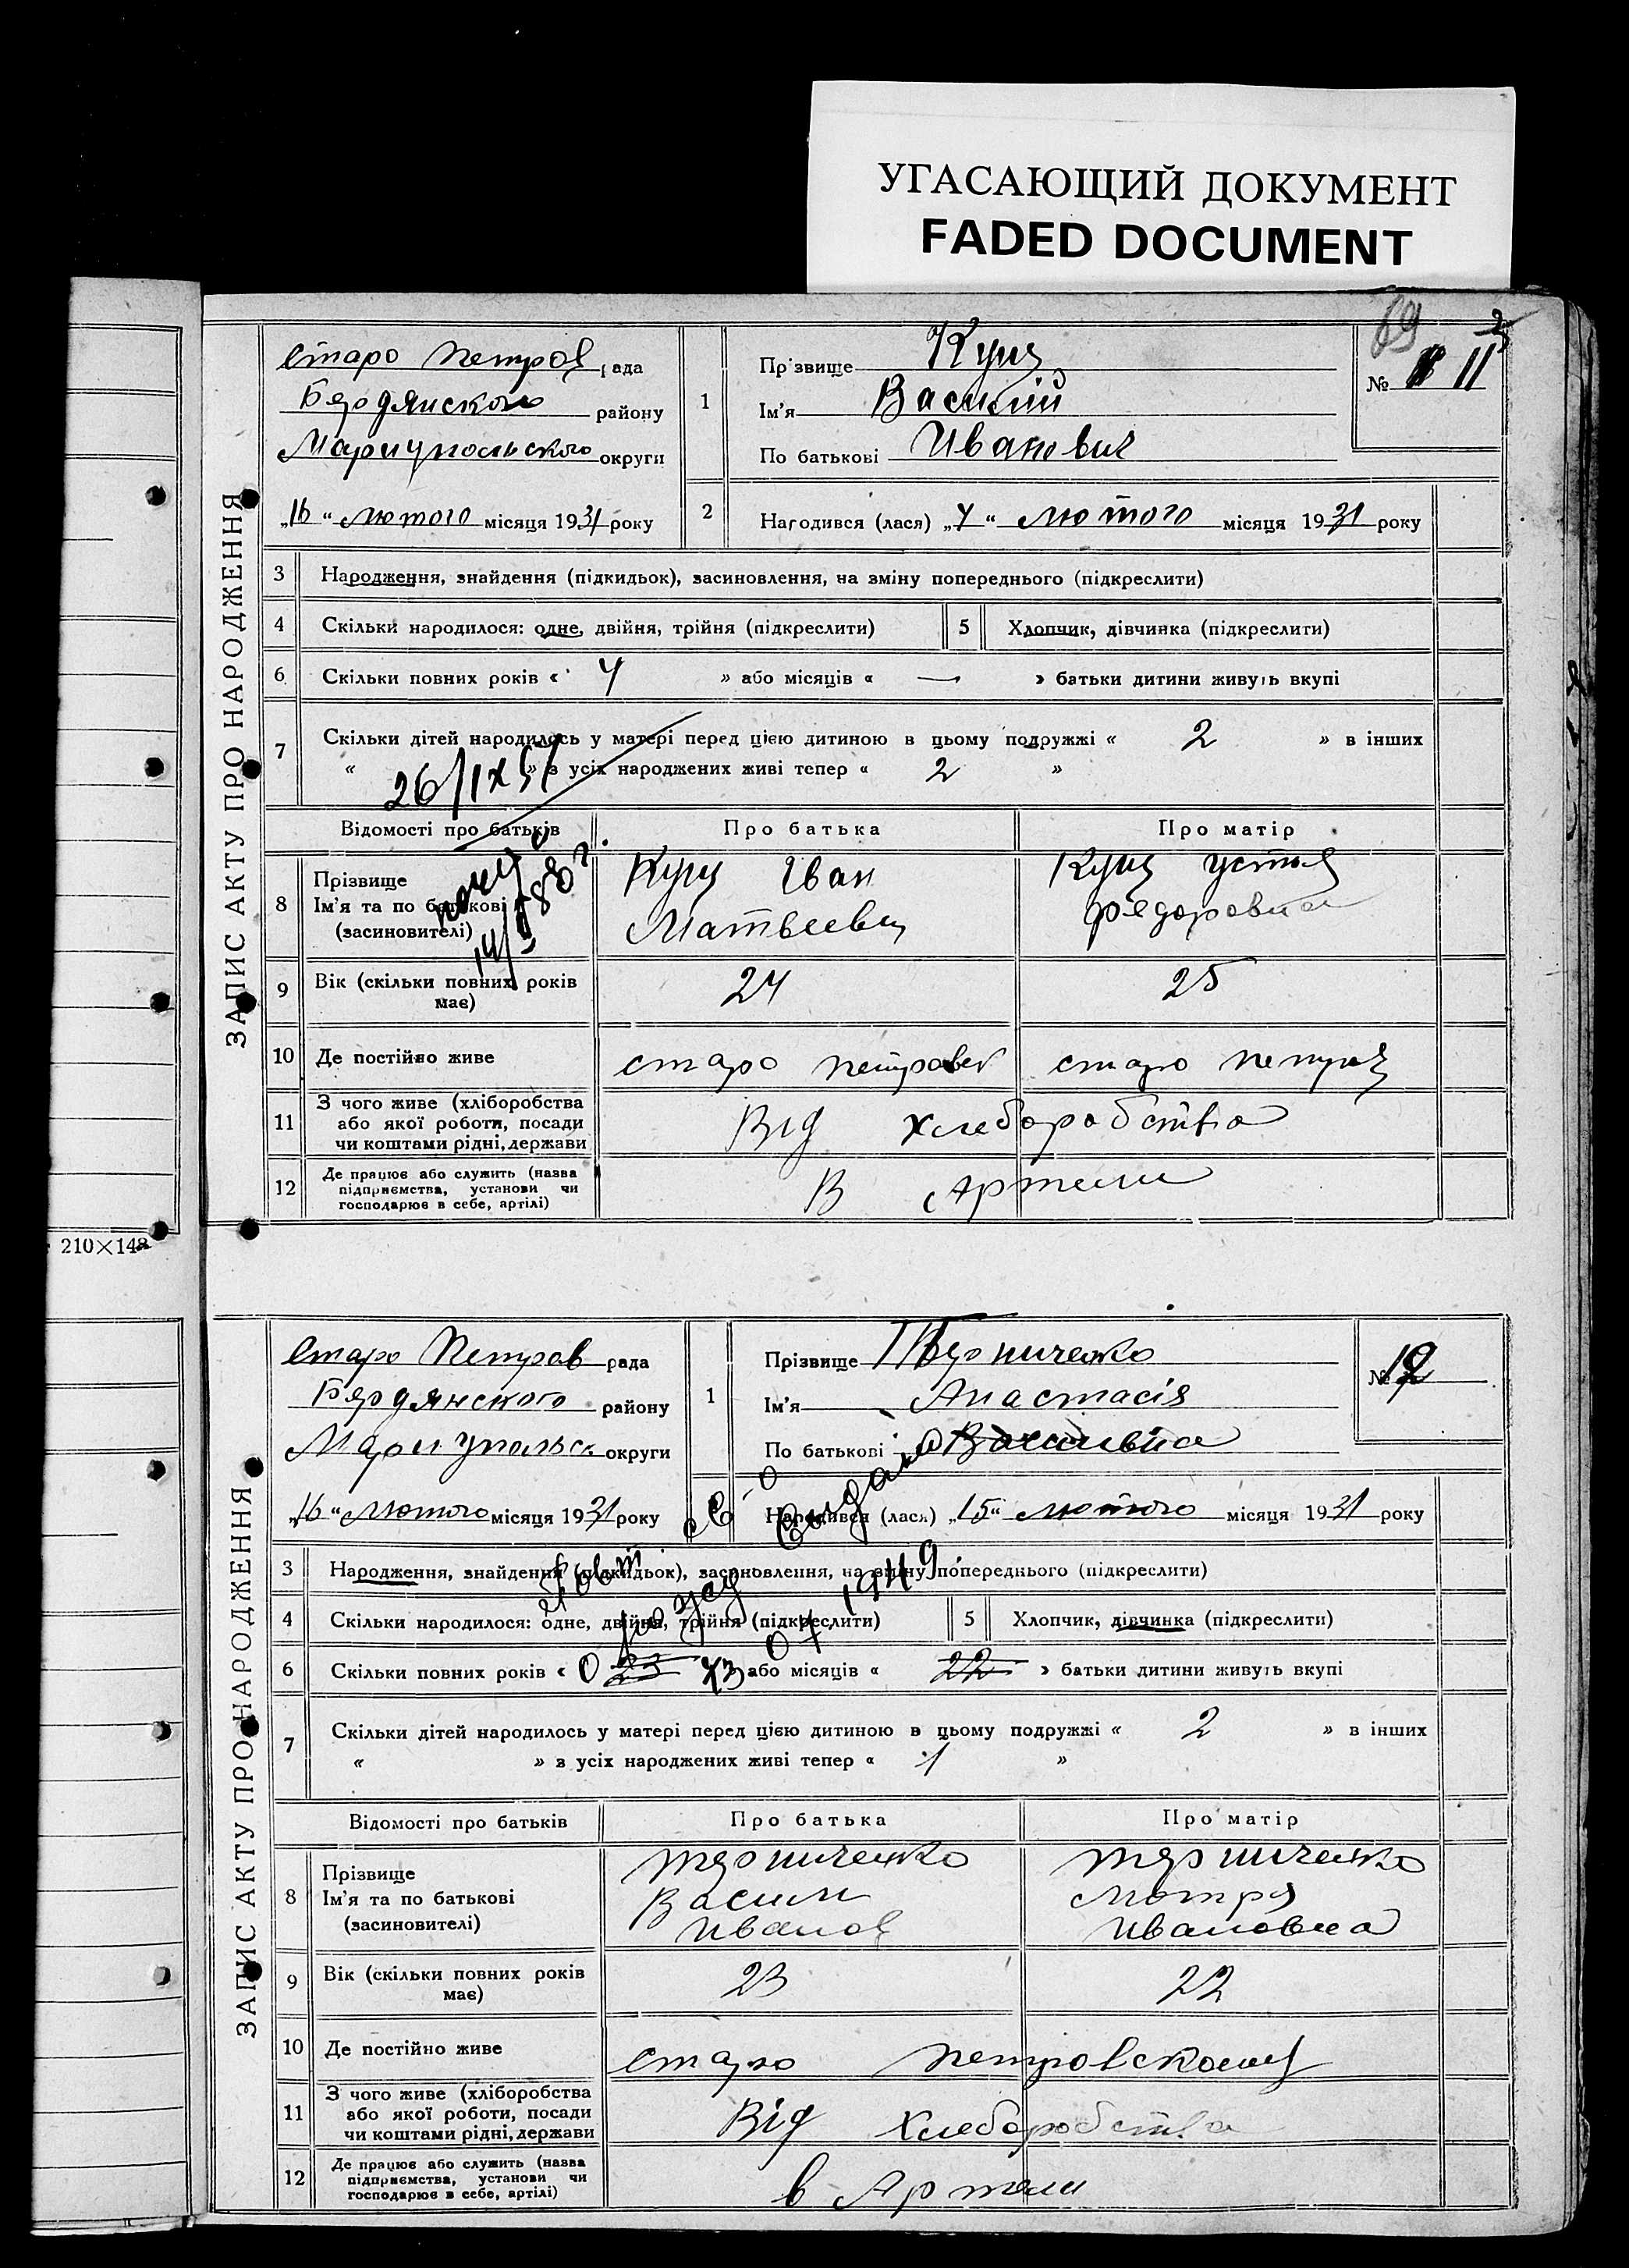 УГАСАЮЩИЙ ДОКУМЕНТ
FADED DOCUMENT
69
ЗАПИС АКТУ ПРО НАРОДЖЕННЯ
Старо Петров рада
Бердянского району
Мариупольского округи
„16“ лютого місяця 1931 року
1
Прізвище Куц
Ім'я Василий
По батькові Иванович
№ 11
2 Народився (лася) „7“ лютого місяця 1931 року
3 Народження, знайдення (підкидьок), засиновлення, на зміну попереднього (підкреслити)
4 Скільки народилося: одне, двійня, трійня (підкреслити) 5 Хлопчик, дівчинка (підкреслити)
6 Скільки повних років « 4 » або місяців « — » батьки дитини живуть вкупі
7 Скільки дітей народилось у матері перед цією дитиною в цьому подружжі « 2 » в інших
« » з усіх народжених живі тепер « 2 »
26/IX 51
Відомості про батьків Про батька Про матір
8 Прізвище
Ім'я та по батькові
(засиновителі)
Куц Іван
Матвеевич
Куц Устья
Федоровна
9 Вік (скільки повних років
має) 24 25
10 Де постійно живе старо петровк старо петров
11 З чого живе (хліборобства
або якої роботи, посади
чи коштами рідні, держави
Від хлеборобства
12 Де працює або служить (назва
підприємства, установи чи
господарює в себе, артілі)
В Артели
210×148
ЗАПИС АКТУ ПРО НАРОДЖЕННЯ
Старо Петров рада
Бердянского району
Мариупольск округи
„16“ Лютого місяця 1931 року
1
Прізвище
Ім'я Анастасія
По батькові Васильевна
№ 12
Народився (лася) „15“ лютого місяця 1931 року
3 Народження, знайдення (підкидьок), засиновлення, на зміну попереднього (підкреслити)
4 Скільки народилося: одне, двійня, трійня (підкреслити) 5 Хлопчик, дівчинка (підкреслити)
6 Скільки повних років « 23 » або місяців « 22 » батьки дитини живуть вкупі
7 Скільки дітей народилось у матері перед цією дитиною в цьому подружжі « 2 » в інших
« » з усіх народжених живі тепер « 1 »
Відомості про батьків Про батька Про матір
8 Прізвище
Ім'я та по батькові
(засиновителі)
Васили
Иванов
Мотря
Ивановна
9 Вік (скільки повних років
має) 23 22
10 Де постійно живе старо петровському
11 З чого живе (хліборобства
або якої роботи, посади
чи коштами рідні, держави
Від Хлеборобства
12 Де працює або служить (назва
підприємства, установи чи
господарює в себе, артілі)
в Артели